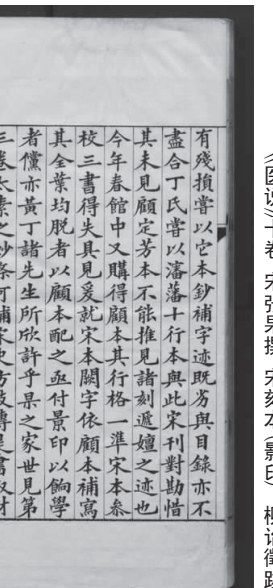 《医说》十卷 宋张杲撰 宋刻本（影印） 柳诒徵跋
有殘損嘗以它本鈔補字迹既劣與目錄亦不
盡合丁氏嘗以瀋藩十行本與此宋刊對勘惜
其未見顧定芳本不能推見諸刻遞嬗之迹也
今年春館中又購得顧本其行格一準宋本叅
校三書得失具見爰就宋本闕字依顧本補寫
其全葉均脫者以顧本配之亟付景印以餉學
者儻亦黃丁諸先生所欣許乎杲之家世見第
三卷太素之妙條可補宋史方技傳